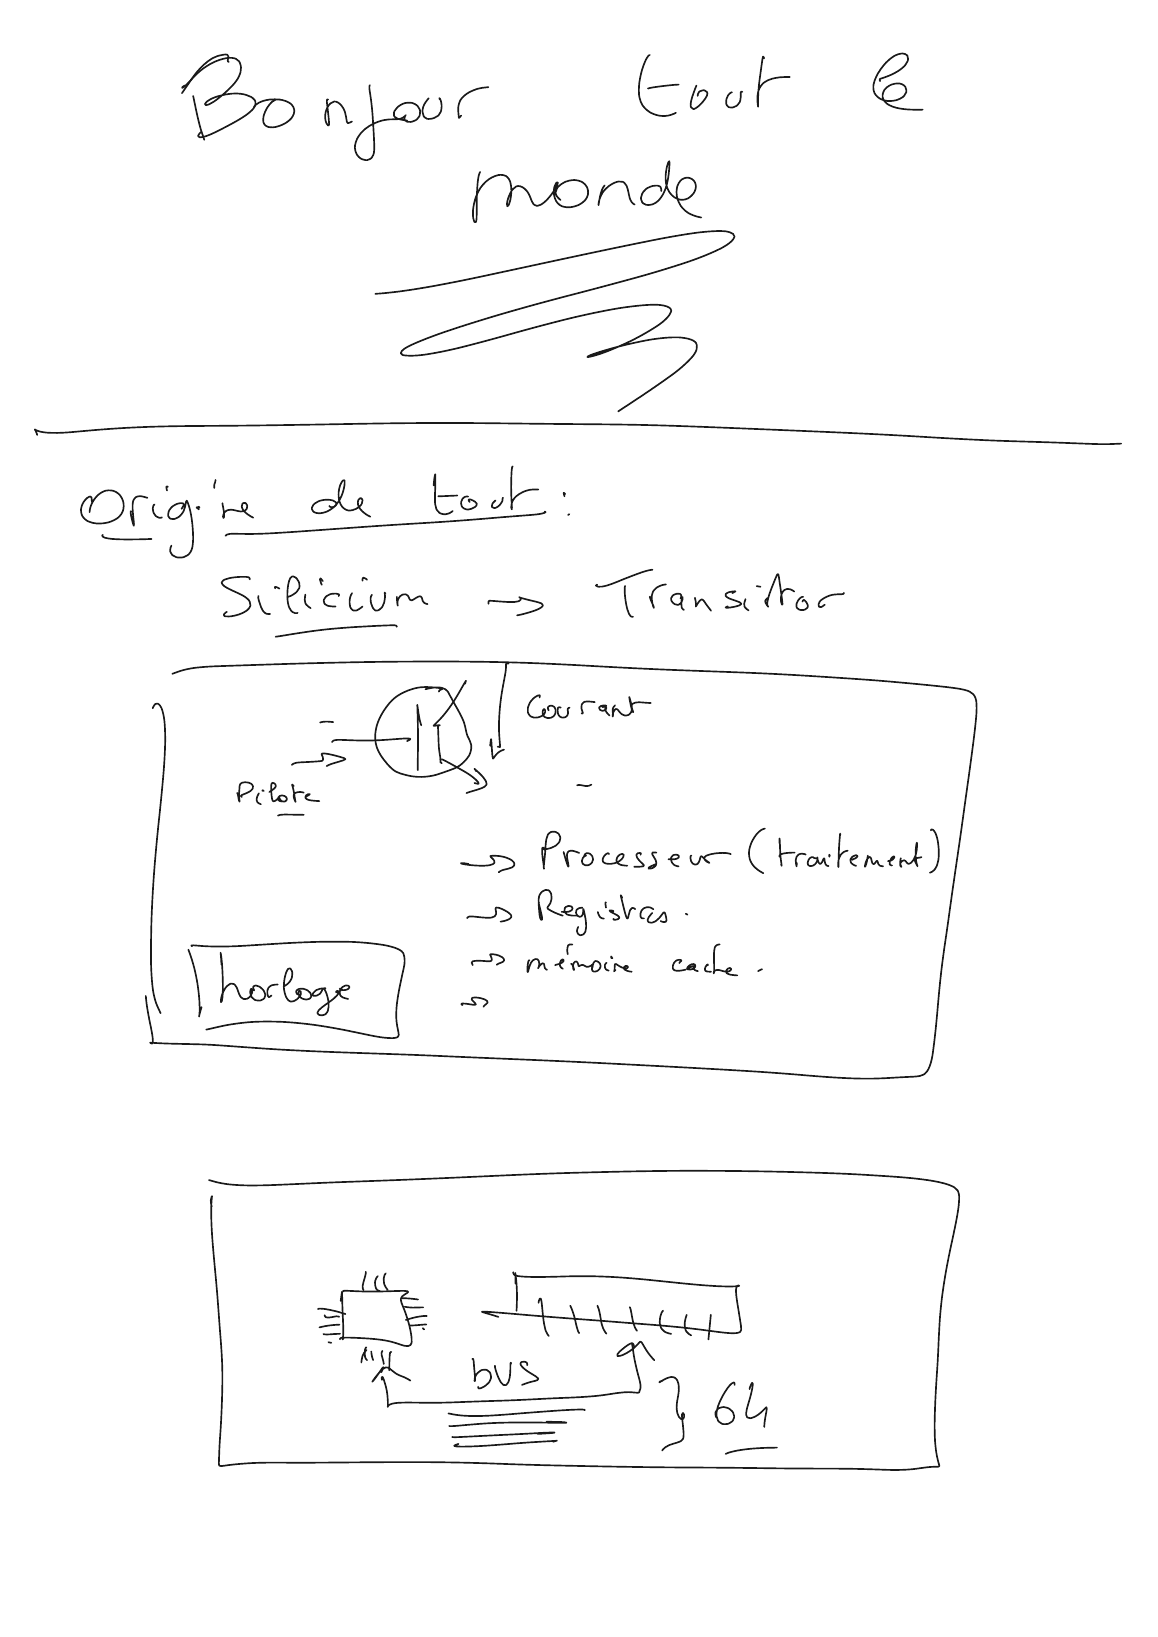 Bonjour tout le
monde
Origine de tout :
Silicium → Transistor
Courant
Pilote
→ Processeur (traitement)
→ Registres.
→ mémoire cache.
→
horloge
bus
} 64